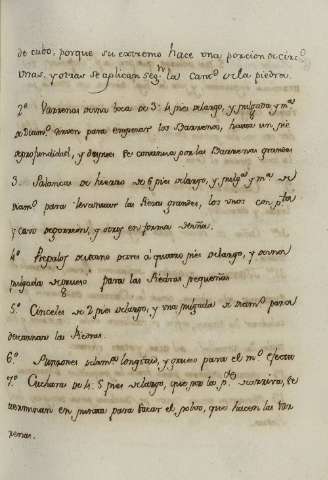 de cubo, porque su extremo hace una porcion de circº
unas, y otras se aplican segⁿ la canᵗ de la piedra.
2º Varrenas de una boca de 3, 4 pies de largo, y pulgada y mª
de Diamº sirven para empezar los Barrenos, hasta un pie
de profundidad, y despues se continua por las Barrenas grandes
3. Palancas de hierro de 6 pies de largo, y pulgª y mª de
Diamº para levantar las Rocas grandes, los unos con
y otros en forma de uña.
4º de tres á quatro pies de largo, y de una
pulgada de grueso para las Piedras pequeñas
5º Cinceles de 2 pies de largo, y una pulgada de Diamº para
las Piedras.
6º Punzones de la mª longitud, y grueso para el mº efecto
7º Cuchara de 4, 5 pies de largo, que por la pᵗᵉ se
terminan en punta para sacar el polvo, que hacen las Bar
renas.